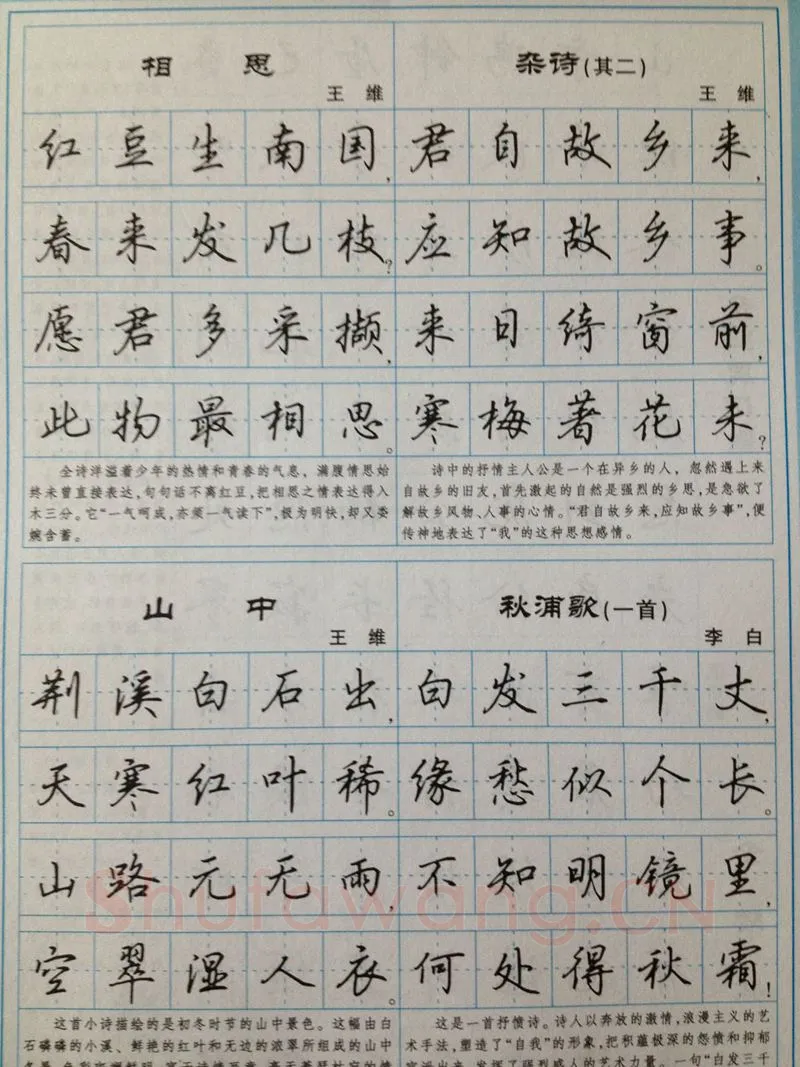 相思
王维
红豆生南国,
春来发几枝?
愿君多采撷,
此物最相思。
全诗洋溢着少年的热情和青春的气息,满腹情思始
终未曾直接表达,句句话不离红豆,把相思之情表达得入
木三分。它“一气呵成,亦须一气读下”,极为明快,却又委
婉含蓄。
杂诗(其二)
王维
君自故乡来,
应知故乡事。
来日绮窗前,
寒梅著花未?
诗中的抒情主人公是一个在异乡的人,忽然遇上来
自故乡的旧友,首先激起的自然是强烈的乡思,是急欲了
解故乡风物、人事的心情。“君自故乡来,应知故乡事”,便
传神地表达了“我”的这种思想感情。
山中
王维
荆溪白石出,
天寒红叶稀。
山路元无雨,
空翠湿人衣。
这首小诗描绘的是初冬时节的山中景色。这幅由白
石磷磷的小溪、鲜艳的红叶和无边的浓翠所组成的山中
秋浦歌(一首)
李白
白发三千丈,
缘愁似个长。
不知明镜里,
何处得秋霜!
这是一首抒愤诗。诗人以奔放的激情,浪漫主义的艺
术手法,塑造了“自我”的形象,把积蕴极深的怨愤和抑郁
宣泄出来,发挥了强烈感人的艺术力量。一句“白发三千
Shufawang.CN